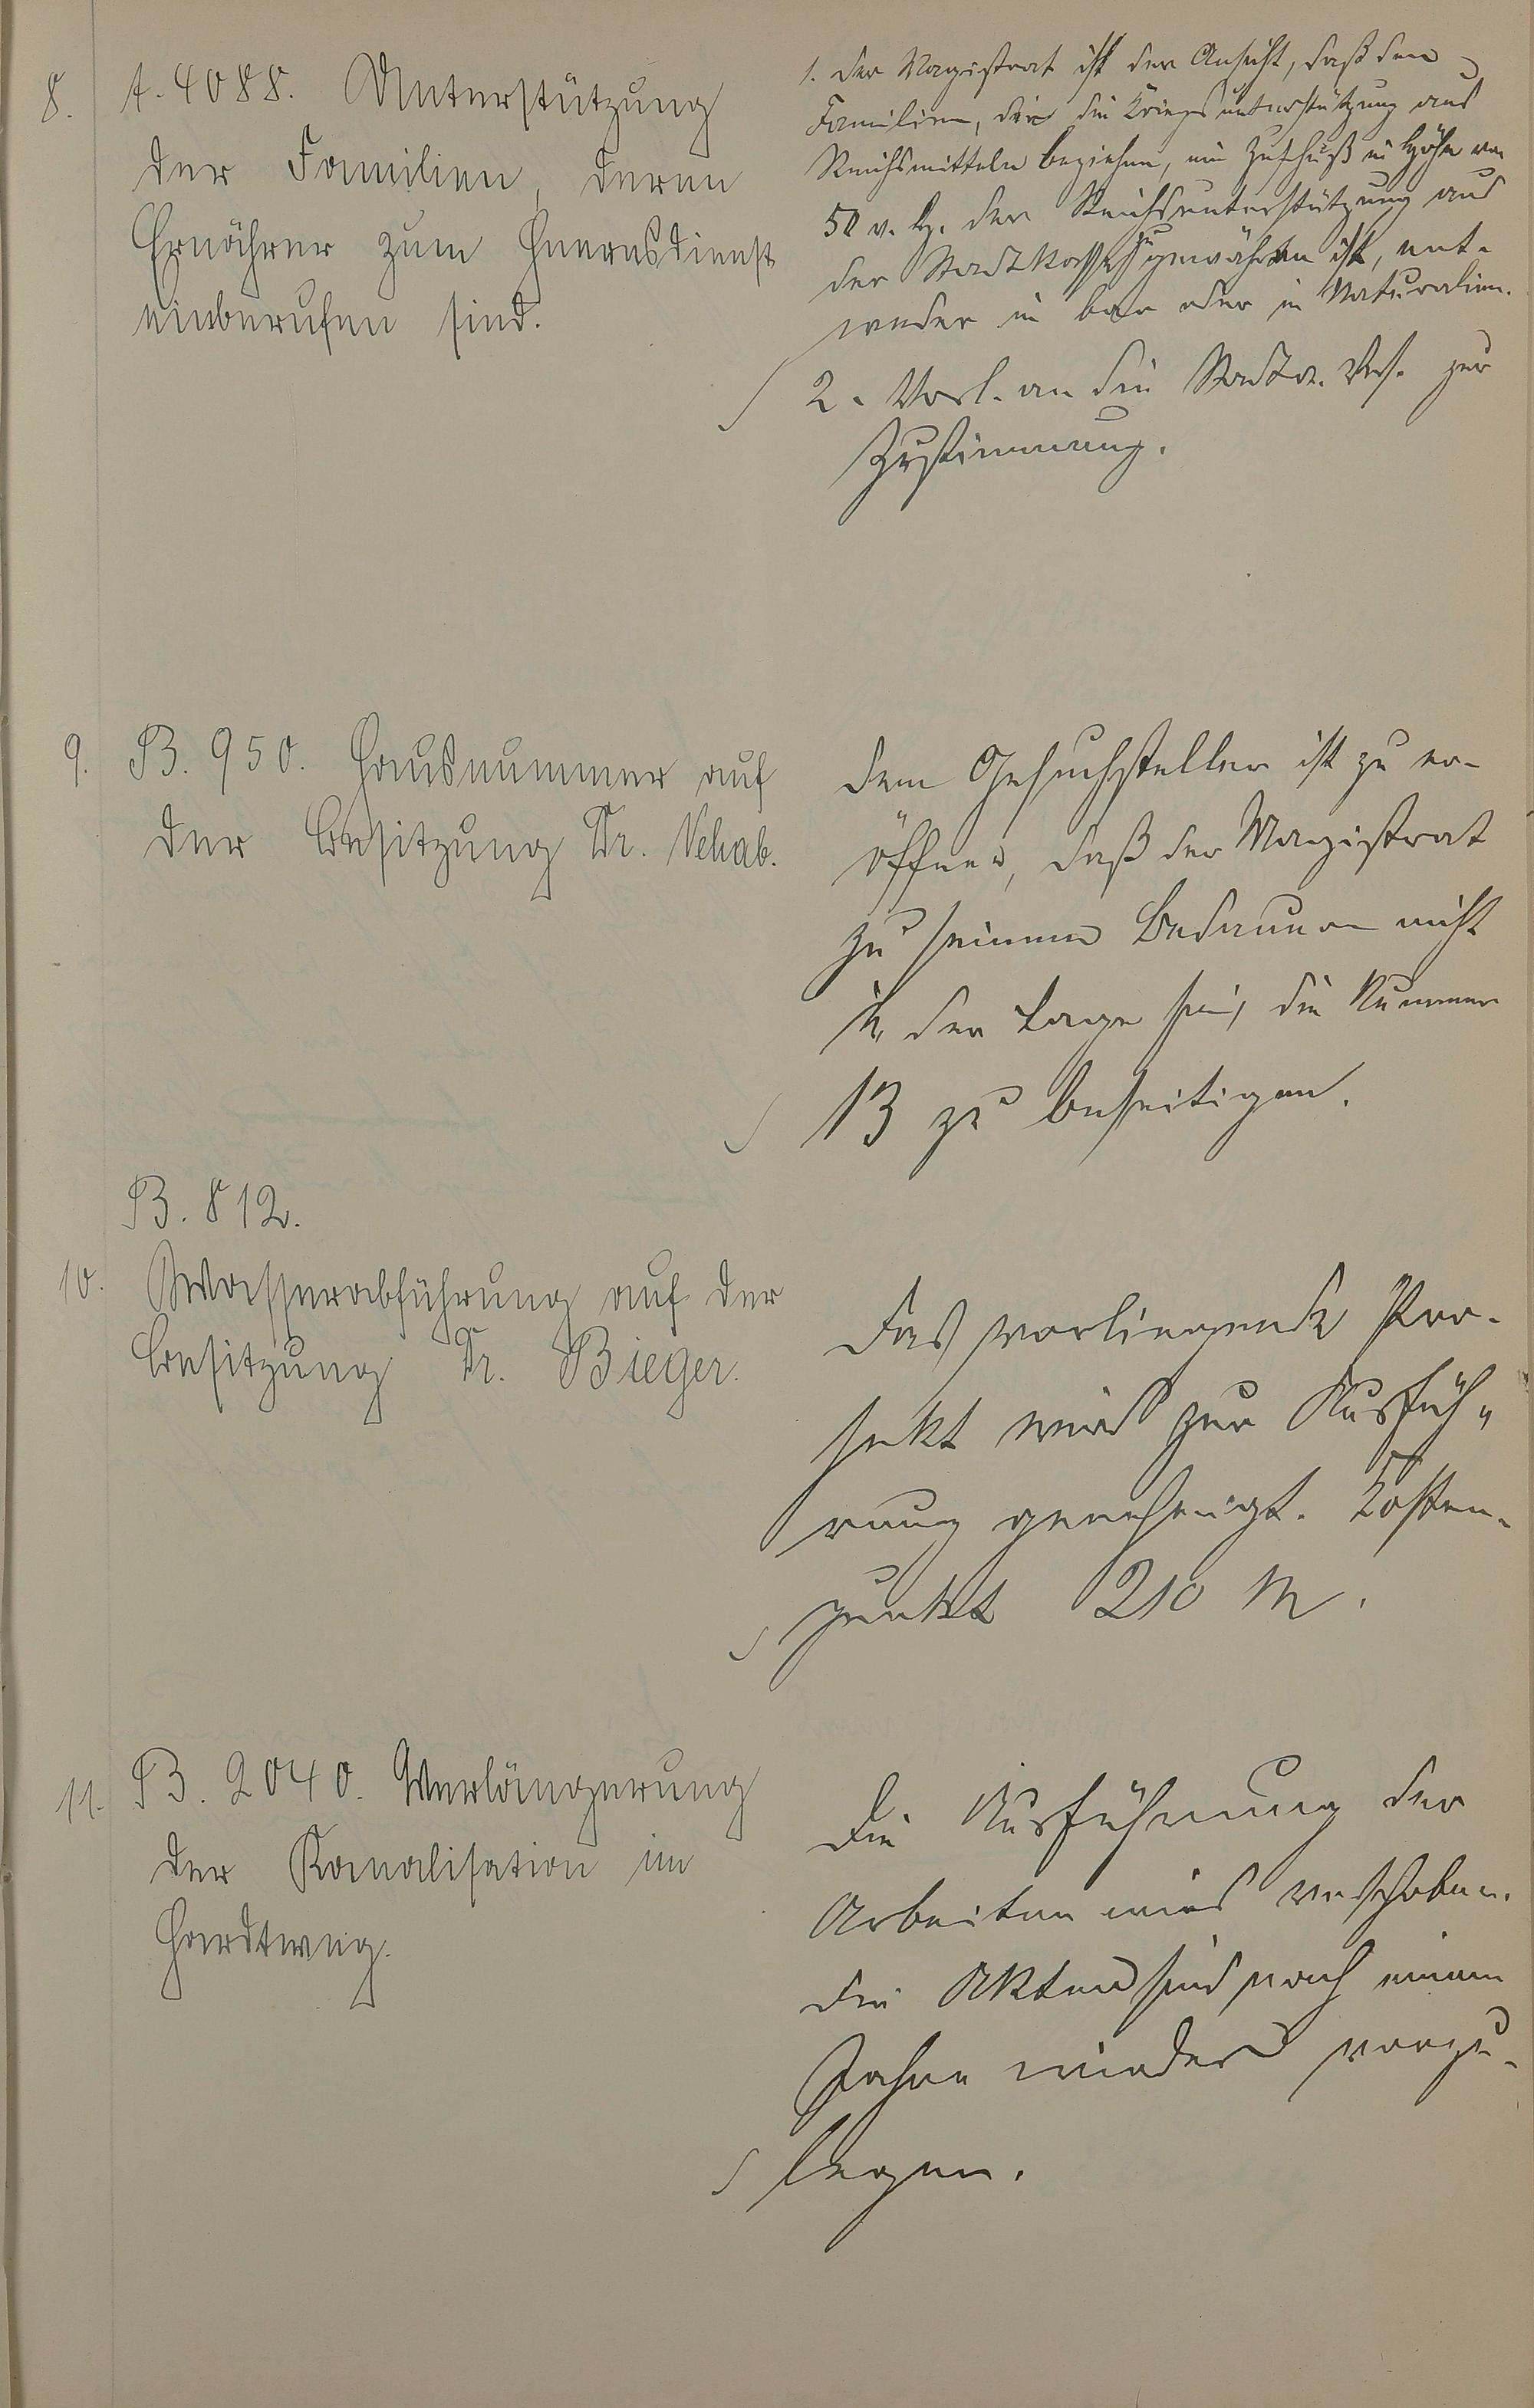 8. A. 4088. Unterstützung
der Familien, deren
Ernährer zum Heeresdienst
einberufen sind.
1. Der Magistrat ist der Ansicht, daß den
Familien, die die Kriegsunterstützung aus
Reichsmitteln beziehen, ein Zuschuß in Höhe von
50 v. H. der Reichsunterstützung aus
der Stadtkasse zu gewähren ist, ent-
weder in bar oder in Naturalien.
2. Vorl. an die Stadtv. Vers. zur
Zustimmung.
9. B. 950. Hausnummer auf
der Besitzung Dr. Vehab.
Dem Gesuchsteller ist zu er-
öffnen, daß der Magistrat
zu seinem Bedauern nicht
in der Lage sei, die Nummer
13 zu beseitigen.
B. 812.
10. Wasserabführung auf der
Besitzung Dr. Bieger.
Das vorliegende Pro-
jekt wird zur Ausfüh-
rung genehmigt. Kosten-
punkt 210 M.
11. B. 2040. Verlängerung
der Kanalisation im
Hardtweg.
Die Ausführung der
Arbeiten wird verschoben.
Die Akten sind nach einem
Jahre wieder vorzu-
legen.